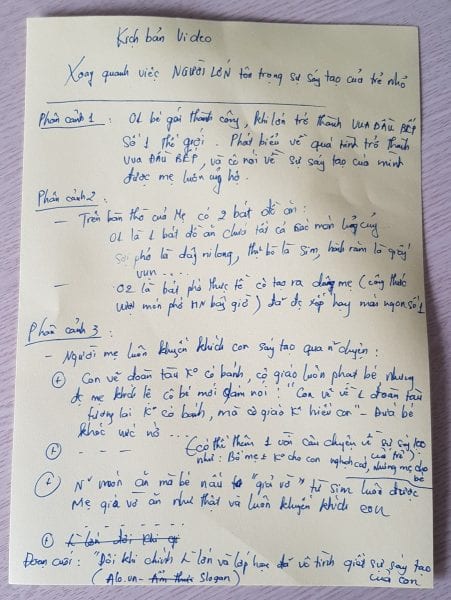 Kịch bản Video
Xoay quanh việc NGƯỜI LỚN tôn trọng sự sáng tạo của trẻ nhỏ
Phân cảnh 1: 01 bé gái thành công, khi lớn trở thành VUA ĐẦU BẾP
Số 1 thế giới. Phát biểu về quá trình trở thành
VUA ĐẦU BẾP, và cô nói về sự sáng tạo của mình
được mẹ luôn ủng hộ.
Phân cảnh 2:
- Trên bàn thờ của Mẹ có 2 bát đồ ăn:
01 là 1 bát đồ ăn chứa tất cả
sợi phở là dây ni long, thịt bò là sim, hành răm là giấy
vụn ....
- 02 là bát phở thực tế cô tạo ra dâng mẹ (công thức
món phở HN bây giờ) đã đc xếp hạng món ngon số 1
Phân cảnh 3:
- Người mẹ luôn khuyến khích con sáng tạo qua n` chuyện:
+ Con vẽ đoàn tàu K° có bánh, cô giáo luôn phạt bé, nhưng
đc mẹ khích lệ cô bé mới dám nói: "Con vẽ về 1 đoàn tàu
tương lai K° có bánh, mà cô giáo K° hiểu con" - Đứa bé
khóc nức nở...
+ - - - (có thể thêm 1 vài câu chuyện về sự sáng tạo
của trẻ
như: Bố mẹ K° cho con nghịch cát, nhưng mẹ cho
bé
+ N` món ăn mà bé nấu "giả vờ" từ sim luôn được
Mẹ giả vờ ăn như thật và luôn khuyến khích con
- - - - -
+
Đoạn cuối: "Đôi khi chính người lớn và lớp học đã vô tình giết sự sáng tạo
của con
(Alo.vn - Slogan)